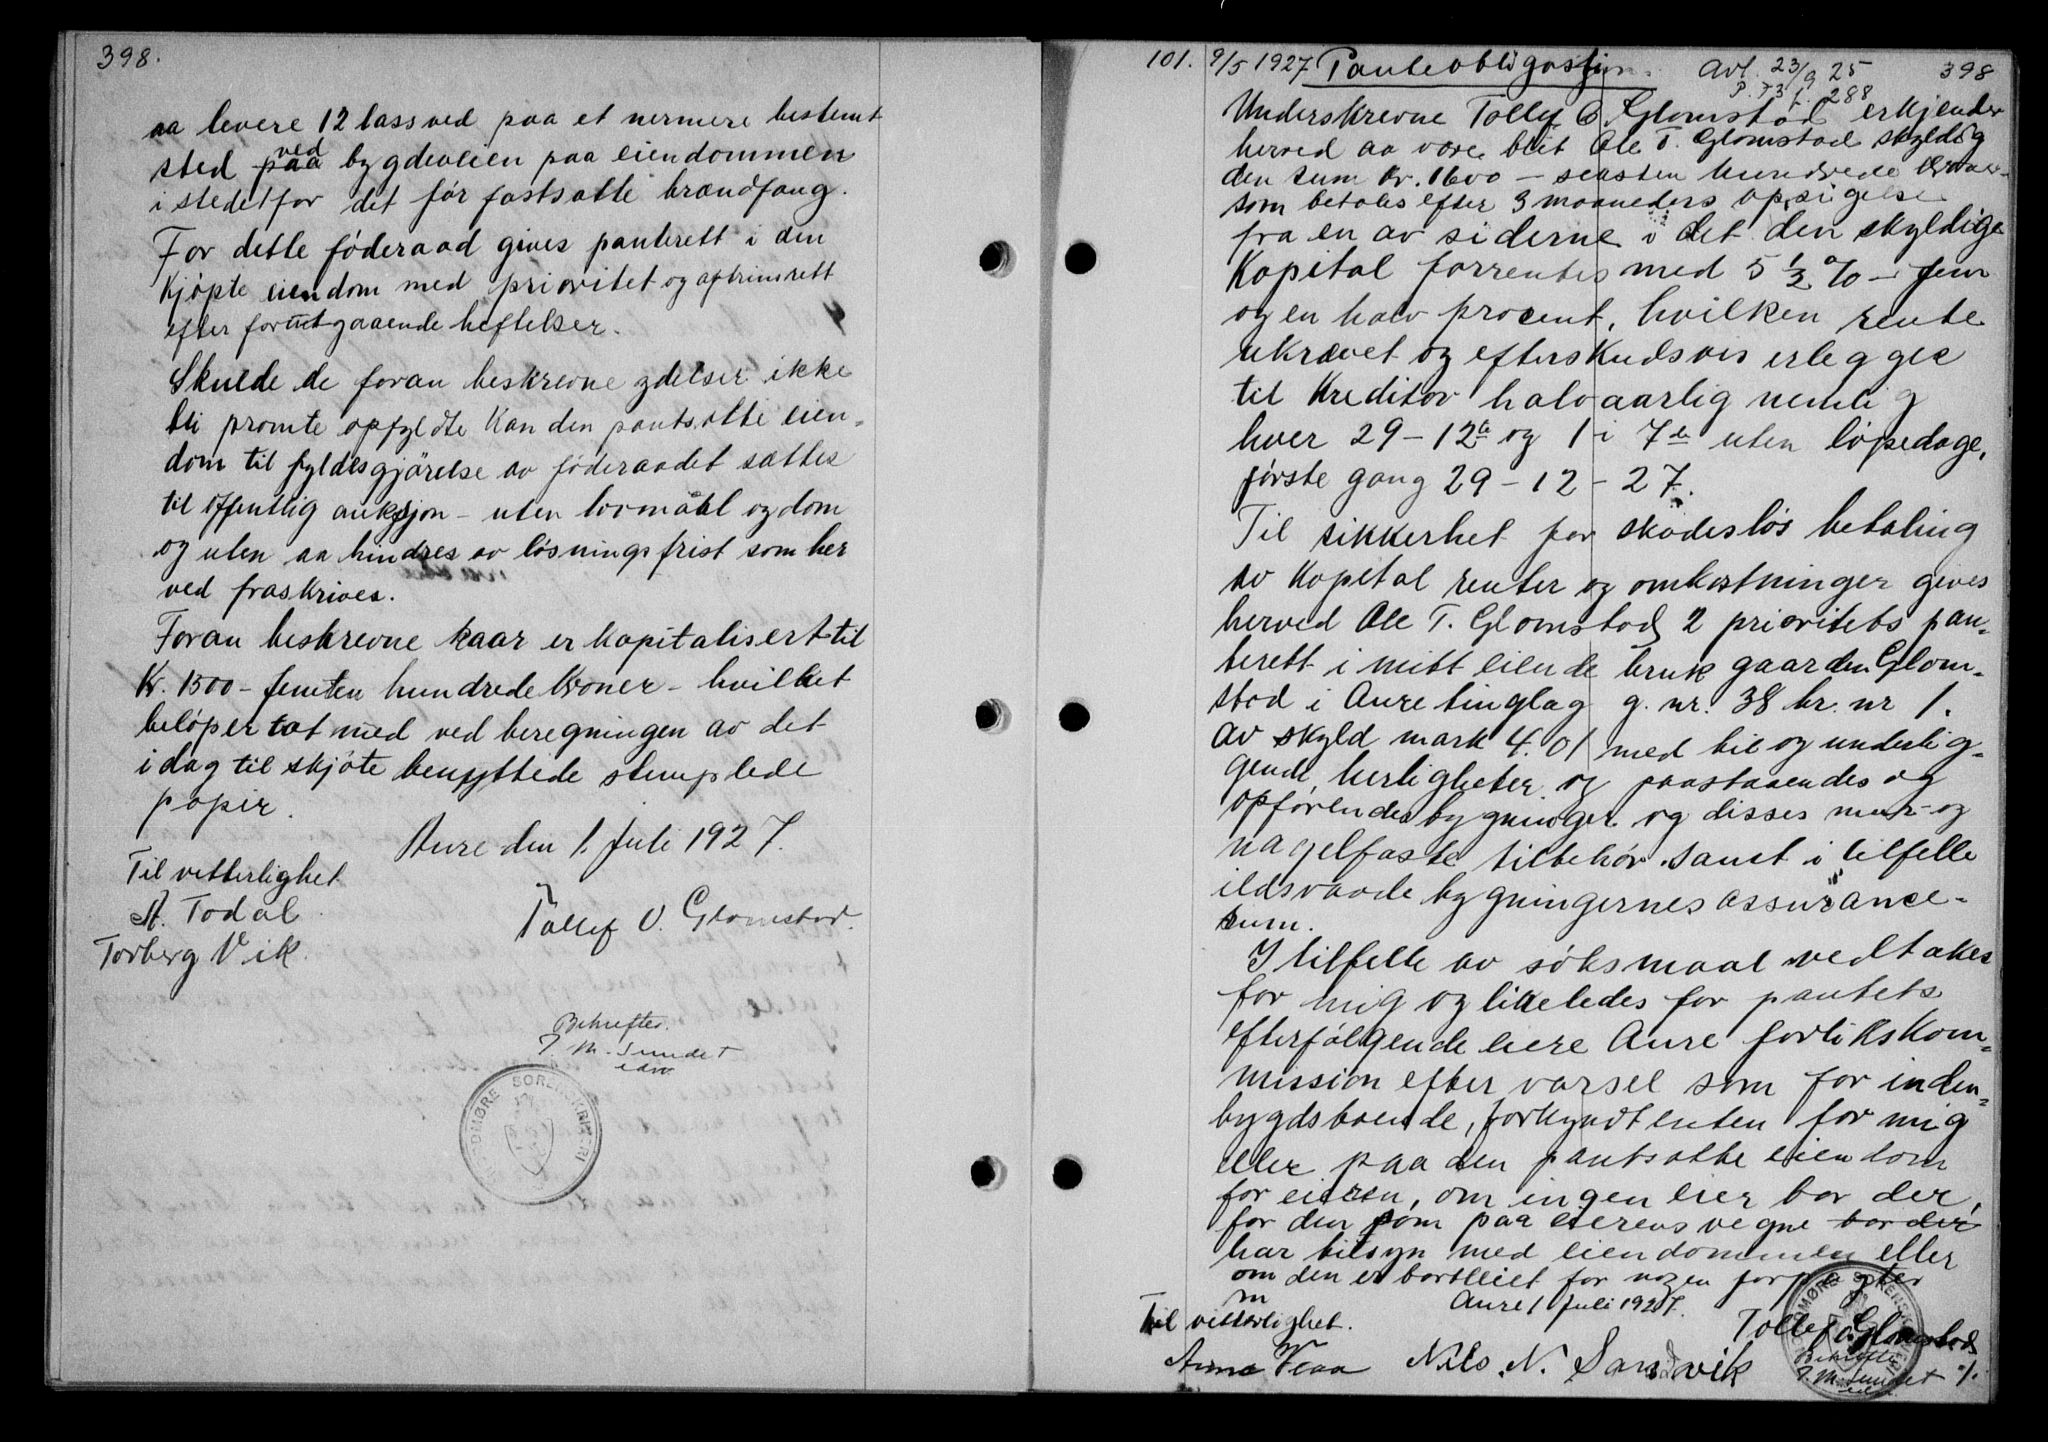 398.
aa levere 12 lass ved paa et nermere bestemt
sted paa ved bygdeveien paa eiendommen
i stedetfor det før fastsatte brændfang.
For dette föderaad gives panterett i den
kjöpte eiendom med prioritet og optrinsrett
efter forutgaaende heftelser.
Skulde de foran beskrevne ydelser ikke
bli promte opfyldte kan den pantsatte eien-
dom til fyldesgjörelse av föderaadet sættes
til offentlig auksjon - uten lovmaal og dom
og uten aa hindres av lösningsfrist som her
ved fraskrives.
Foran beskrevne kaar er kapitalisert til
Kr. 1500 - femten hundrede kroner - hvilket
belöper tat med ved beregningen av det
i dag til skjöte benyttede stemplede
papir.
Aure den 1. Juli 1927.
Til vitterlighet
A. Todal
Torberg Vik.
Tollef O. Glomstad.
Bekreftes.
J. M. Sundet
edv
NORDMØRE SORENSKRIVERI
101. 9/5 1927 Panteobligasjon. Avl. 23/9 25 398
P. 73 L. 288
Underskrevne Tollef O. Glomstad erkjender
herved aa være blit Ole T. Glomstad skyldig
den sum kr. 1600 - seksten hundrede kroner -
som betales efter 3 maaneders opsigelse
fra en av siderne i det den skyldige
Kapital forrentes med 5 1/2 % - fem
og en halv procent, hvilken rente
ukrævet og efterskudsvis erlegges
til Kreditor halvaarlig nemlig
hver 29 - 12te og 1 i 7de uten löpedage,
förste gang 29 - 12 - 27.
Til sikkerhet for skadeslös betaling
av Kapital renter og omkostninger gives
herved Ole T. Glomstad 2 prioritets pan-
terett i mitt eiende bruk gaarden Glom-
stad i Aure tinglag g. nr. 38 br. nr 1.
av skyld mark 4.01 med til og underlig-
gende herligheter og paastaaendes og
opförendes bygninger og disses mur- og
nagelfaste tilbehör samt i tilfelle
ildsvaade bygningernes assurance-
sum.
I tilfelle av söksmaal vedtakes
for mig og likeledes for pantets
efterfölgende eiere Aure forlikskom-
mission efter varsel som for inden-
bygdsboende, forkyndt enten for mig
eller paa den pantsatte eiendom
for eieren, om ingen eier bor der,
for den som paa eierens vegne bor der
har tilsyn med eiendommen eller
om den er bortleiet for nogen forpagter
Aure 1 Juli 1927.
Til vitterlighet.
Tollef O. Glomstad
Nils N. Sandvik
Bekreftes
J. M. Sundet
edv.
NORDMØRE SORENSKRIVERI